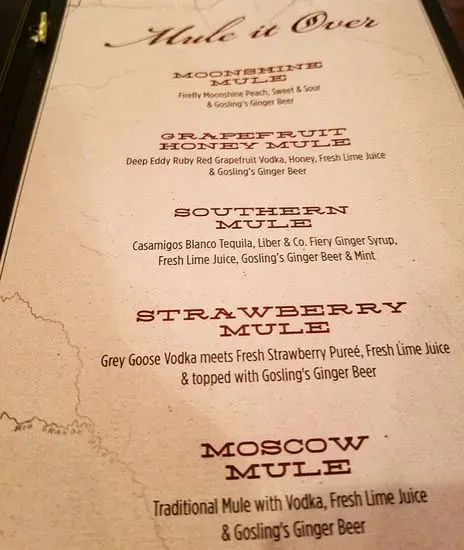 Mule it Over
MOONSHINE
MULE
Firefly Moonshine Peach, Sweet & Sour
& Gosling's Ginger Beer
GRAPEFRUIT
HONEY MULE
Deep Eddy Ruby Red Grapefruit Vodka, Honey, Fresh Lime Juice
& Gosling's Ginger Beer
SOUTHERN
MULE
Casamigos Blanco Tequila, Liber & Co. Fiery Ginger Syrup,
Fresh Lime Juice, Gosling's Ginger Beer & Mint
STRAWBERRY
MULE
Grey Goose Vodka meets Fresh Strawberry Pureé, Fresh Lime Juice
& topped with Gosling's Ginger Beer
RIO GRANDE
MOSCOW
MULE
Traditional Mule with Vodka, Fresh Lime Juice
& Gosling's Ginger Beer